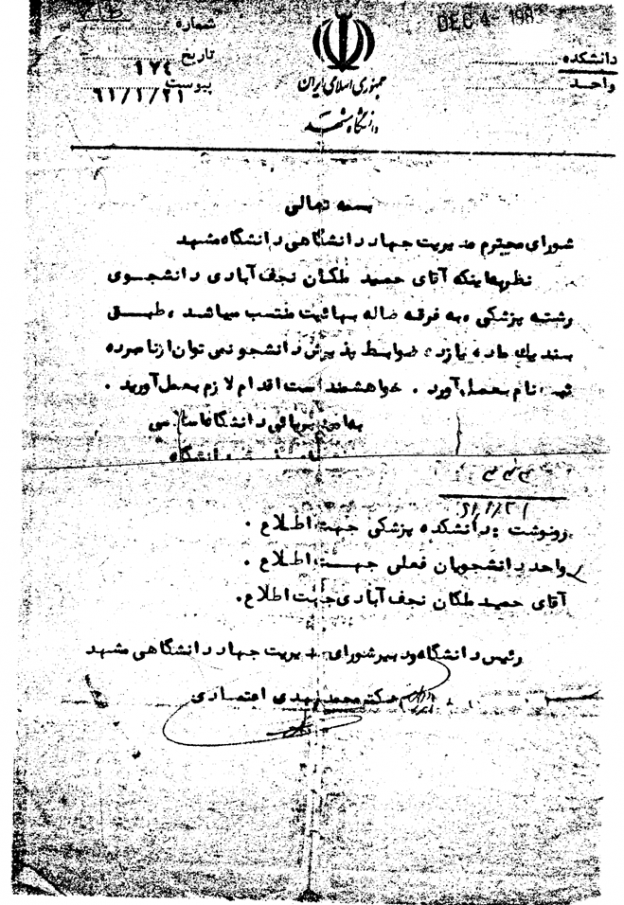 DEC 4 - 198
شماره
تاریخ
۱۷٤
پیوست
۶۱/۱/۲۱
دانشکده
واحد
جمهوری اسلامی ایران
دانشگاه مشهد
بسمه تعالی
شورای محترم مدیریت جهاد دانشگاهی دانشگاه مشهد
نظر باینکه آقای حمید ملکان نجف آبادی دانشجوی
رشته پزشکی ،به فرقه ضاله بهائیت منتسب میباشد ،طبق
بند یك ماده یازده ضوابط پذیرش دانشجو نمی توان از نامبرده
ثبت نام بعمل آورد . خواهشمند است اقدام لازم بعمل آورید .
دانشگاه
۶۱/۱/۲۱
رونوشت :دانشکده پزشکی جهت اطلاع .
واحد دانشجویان فعلی جهت اطلاع .
آقای حمید ملکان نجف آبادی جهت اطلاع.
رئیس دانشگاه ودبیرشورای مدیریت جهاد دانشگاهی مشهد
دکتر محمد مهدی اعتصادی